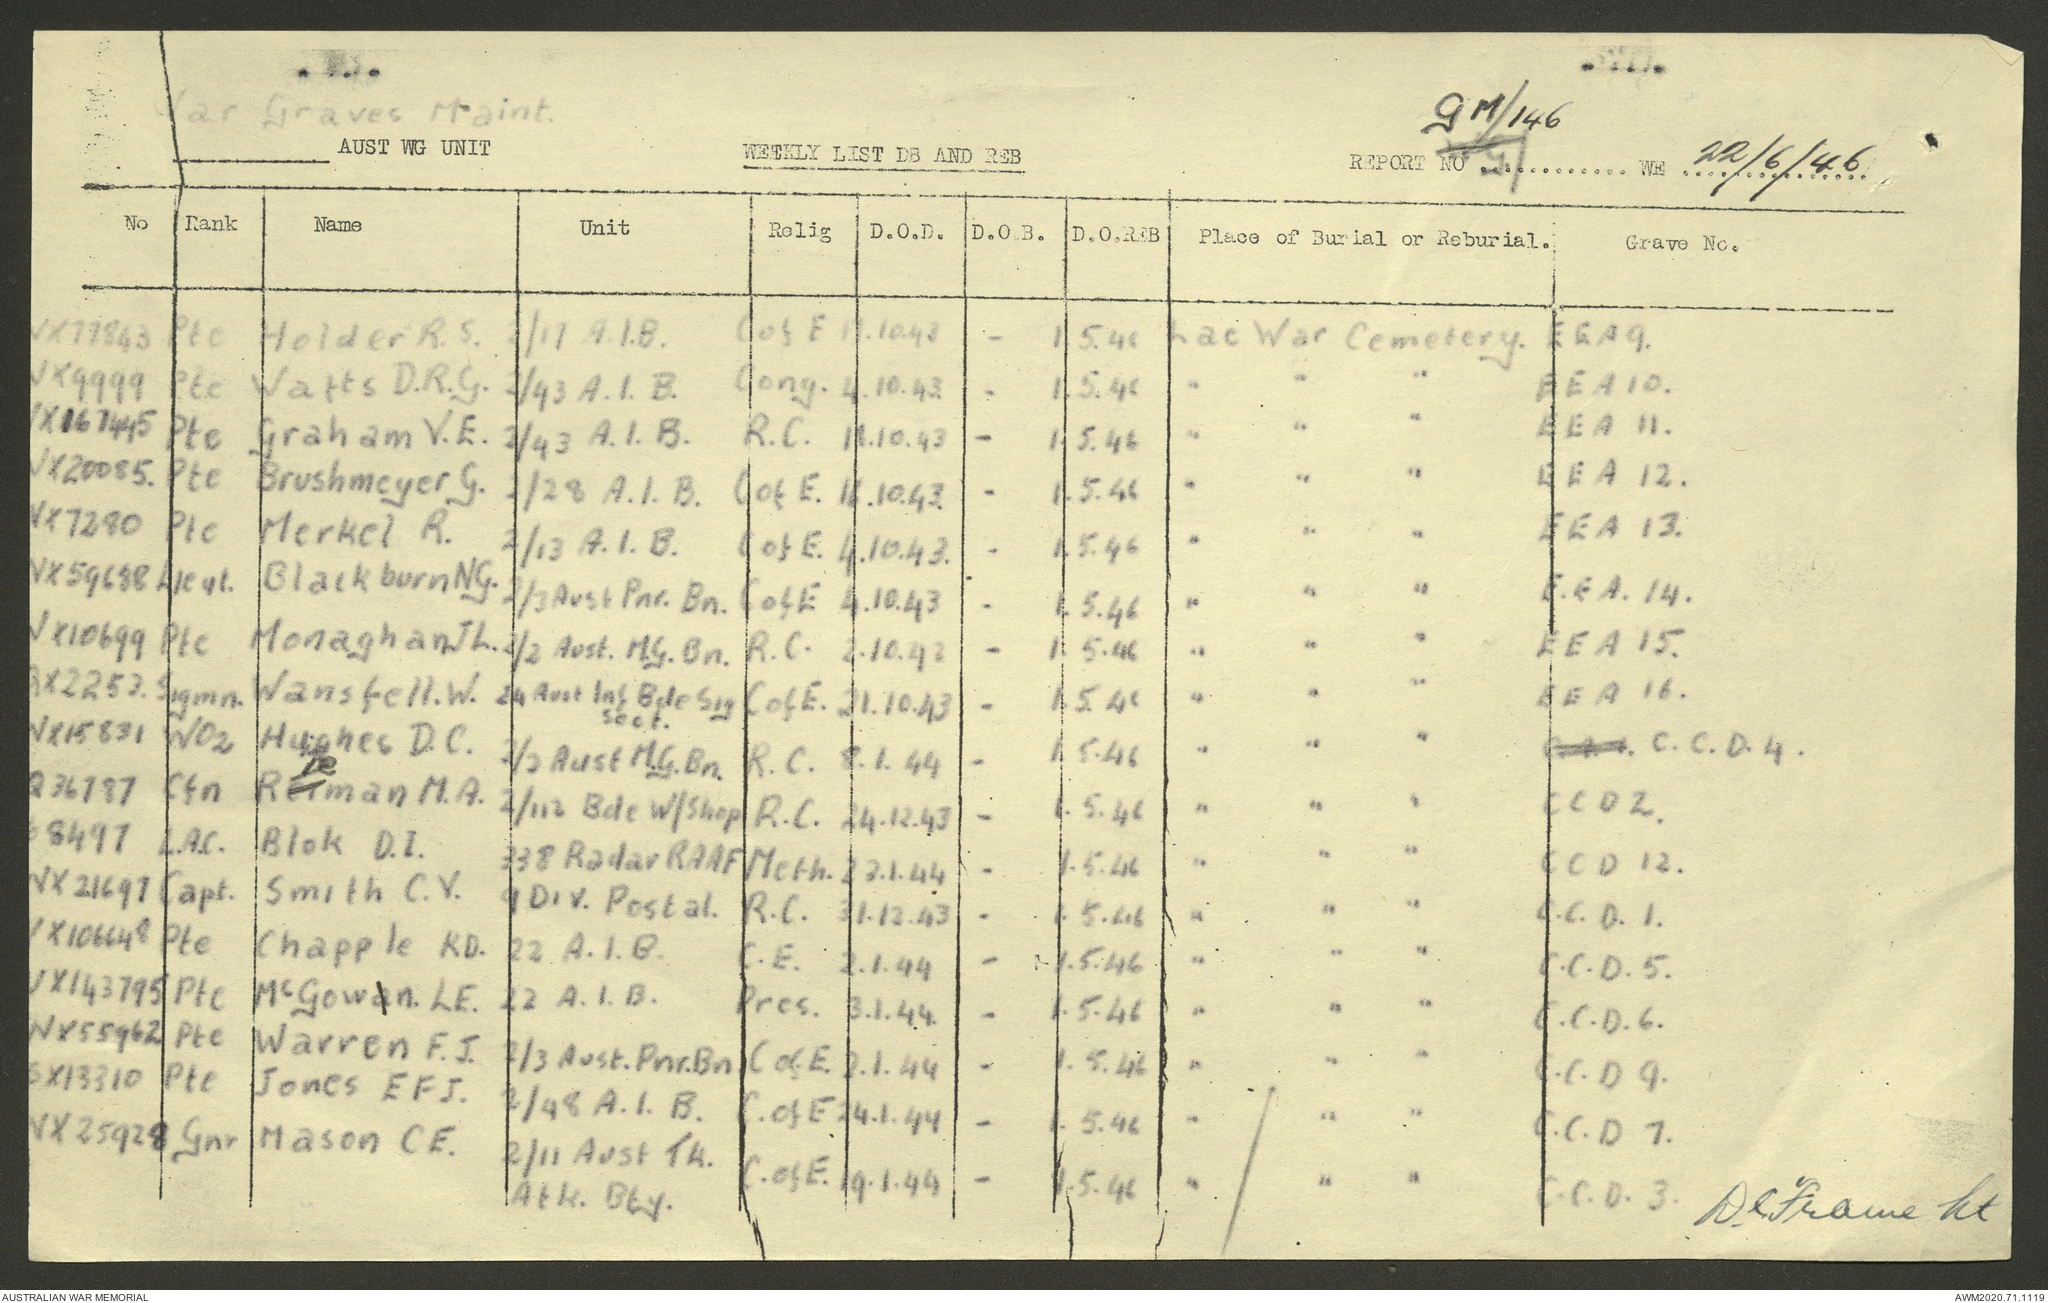 War Graves Maint.
AUST WG UNIT WEEKLY LIST DB AND REB REPORT NO GM/146 WE 22/6/46
No Rank Name Unit Relig D.O.D. D.O.B. D.O.REB Place of Burial or Reburial. Grave No.
NX77843 Pte Holder R.S. 2/17 A.I.B. C of E .10.43 - 1.5.46 Lae War Cemetery. E E A 9.
VX9999 Pte Watts D.R.G. 2/43 A.I.B. Cong. 4.10.43 1.5.46 " " " E E A 10.
VX167445 Pte Graham V.E. 2/43 A.I.B. R.C. .10.43 - 1.5.46 " " " E E A 11.
VX20085. Pte Brushmeyer G. 2/28 A.I.B. C of E. .10.43. - 1.5.46 " " " E E A 12.
NX7280 Pte Merkel R. 2/13 A.I.B. C of E. 4.10.43. - 1.5.46 " " " E E A 13.
NX59688 Lieut. Blackburn NG. 2/3 Aust Pnr. Bn. C of E 4.10.43 - 1.5.46 " " " E.E A. 14.
VX10699 Pte Monaghan J L. 2/2 Aust. M.G. Bn. R.C. 2.10.42 - 1.5.46 " " " E E A 15.
QX2253. Sigmn. Wansfell. W. 24 Aust Inf Bde Sig Sect. C of E. 21.10.43 - 1.5.46 " " " E E A 16.
NX15831 WO2 Hughes D.C. 2/2 Aust M.G. Bn. R.C. 8.1.44 - 1.5.46 " " " C.C.D.4.
Q36787 Cfn Reiman M.A. ie 2/112 Bde W/Shop R.C. 24.12.43 - 1.5.46 " " " C C D 2.
68497 L.A.C. Blok D.I. 338 Radar RAAF Meth. 23.1.44 - 1.5.46 " " " C C D 12.
NX21697 Capt. Smith C.V. 9 Div. Postal. R.C. 31.12.43 - 1.5.46 " " " C.C.D.1.
VX106648 Pte Chapple KD. 22 A.I.B. C.E. 2.1.44 - 1.5.46 " " " C.C.D.5.
VX143795 Pte McGowan. L.E. 22 A.I.B. Pres. 3.1.44. - 1.5.46 " " " C.C.D.6.
NX55962 Pte Warren F.J. 2/3 Aust. Pnr. Bn C of E. 2.1.44 - 1.5.46 " " " C.C.D 9.
SX13310 Pte Jones E F J. 2/48 A.I.B. C. of E 24.1.44 - 1.5.46 " " " C.C.D 7.
NX25928 Gnr Mason C E. 2/11 Aust Tk. Atk. Bty. C. of E. 19.1.44 - 1.5.46 " " " C.C.D. 3.
D C Frame Lt
AUSTRALIAN WAR MEMORIAL AWM2020.71.1119